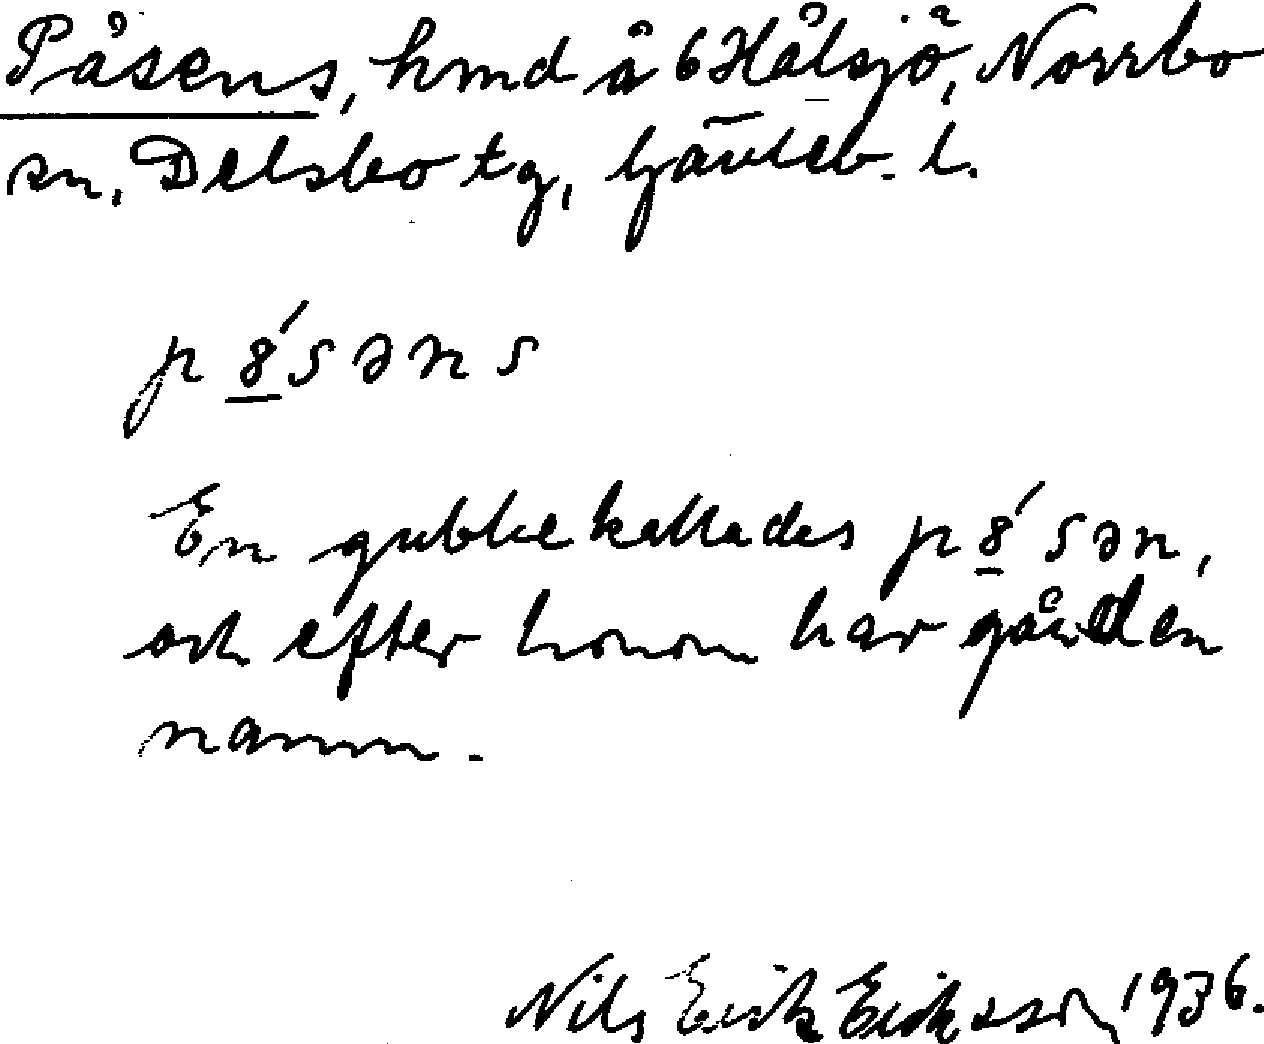 Påsens, hmd å 6 Hålsjö, Norrbo
sn, Delsbo tg, Gävleb. l.
p8́səns
En gubbe kallades p8́sən,
och efter honom har gården
namn.
Nils Erik Eriksson, 1936.